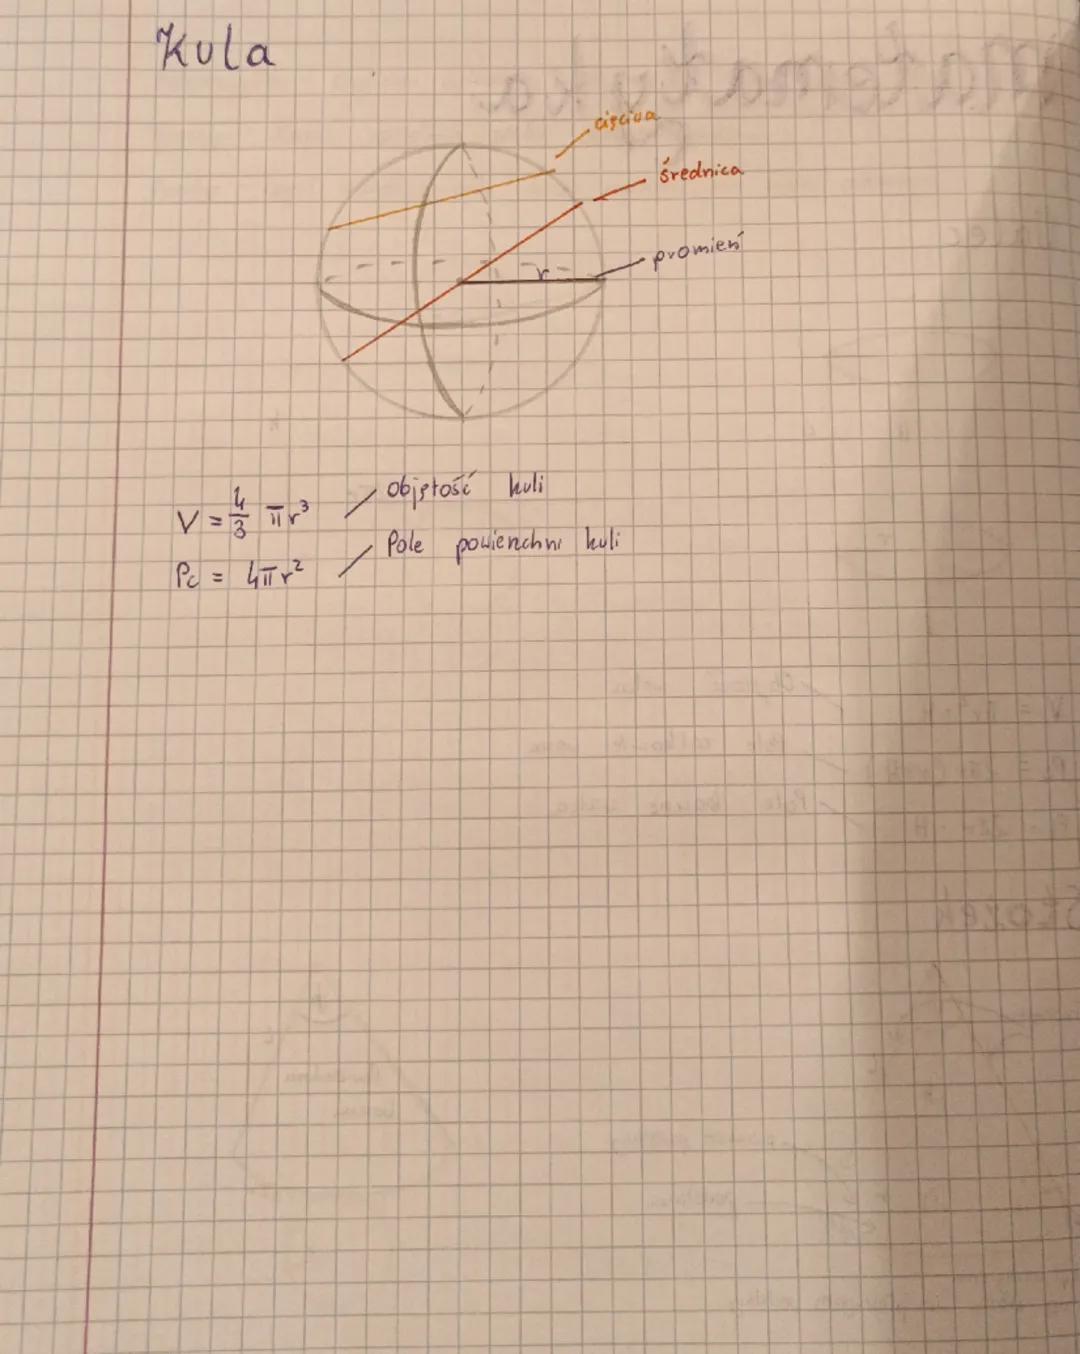 Kula
cięciwa
średnica
promień
r
V = 4/3 πr³
objętość kuli
Pc = 4πr²
Pole powierzchni kuli